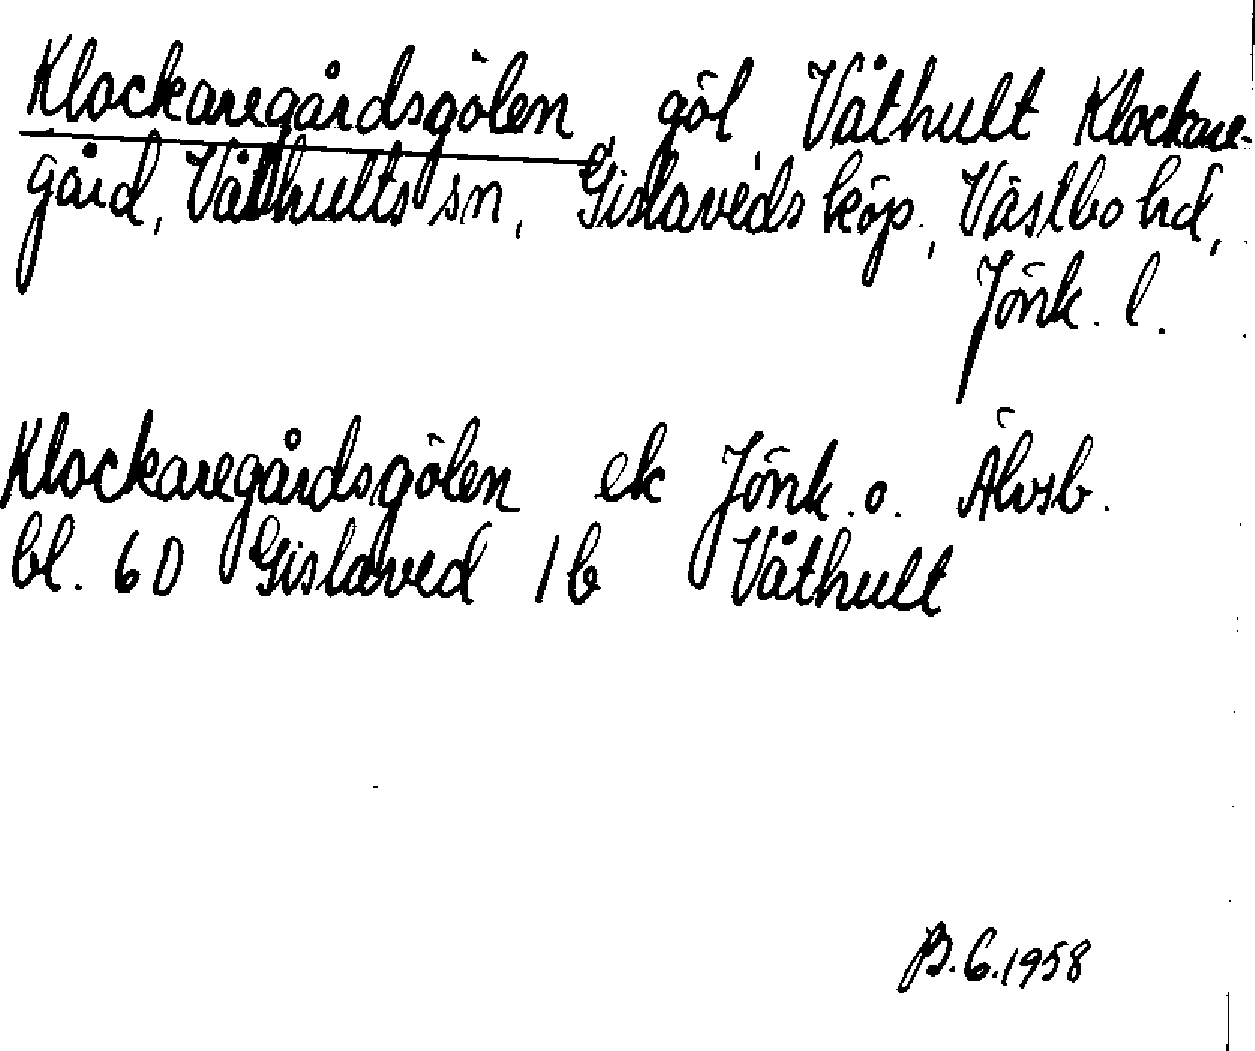 Klockaregårdsgölen, göl, Våthult Klockare-
gård, Våthults sn, Gislaveds köp., Västbo hd,
Jönk. l.
Klockaregårdsgölen ek Jönk. o. Älvsb.
bl. 60 Gislaved 1b Våthult
B.G.1958